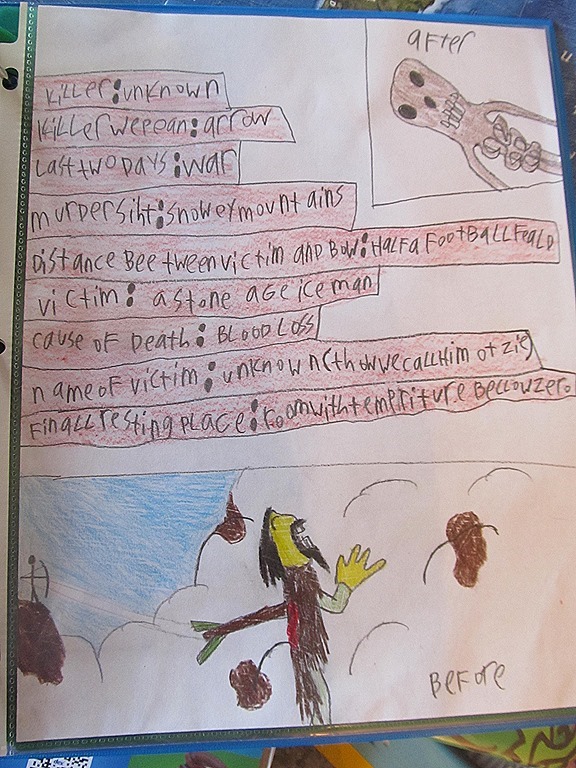 AFTER
killer:unknown
killer wepean:arrow
Last two days:war
murder siht:snowey mount ains
Distance Bee tween victim and Bow:Half a Football Feald
victim: a stone age ice man
cause of Death: BLOOD Loss
name of victim:unknown(thow we call Him otzie)
Finall resting place:room with tempriture Bellow zero
Before